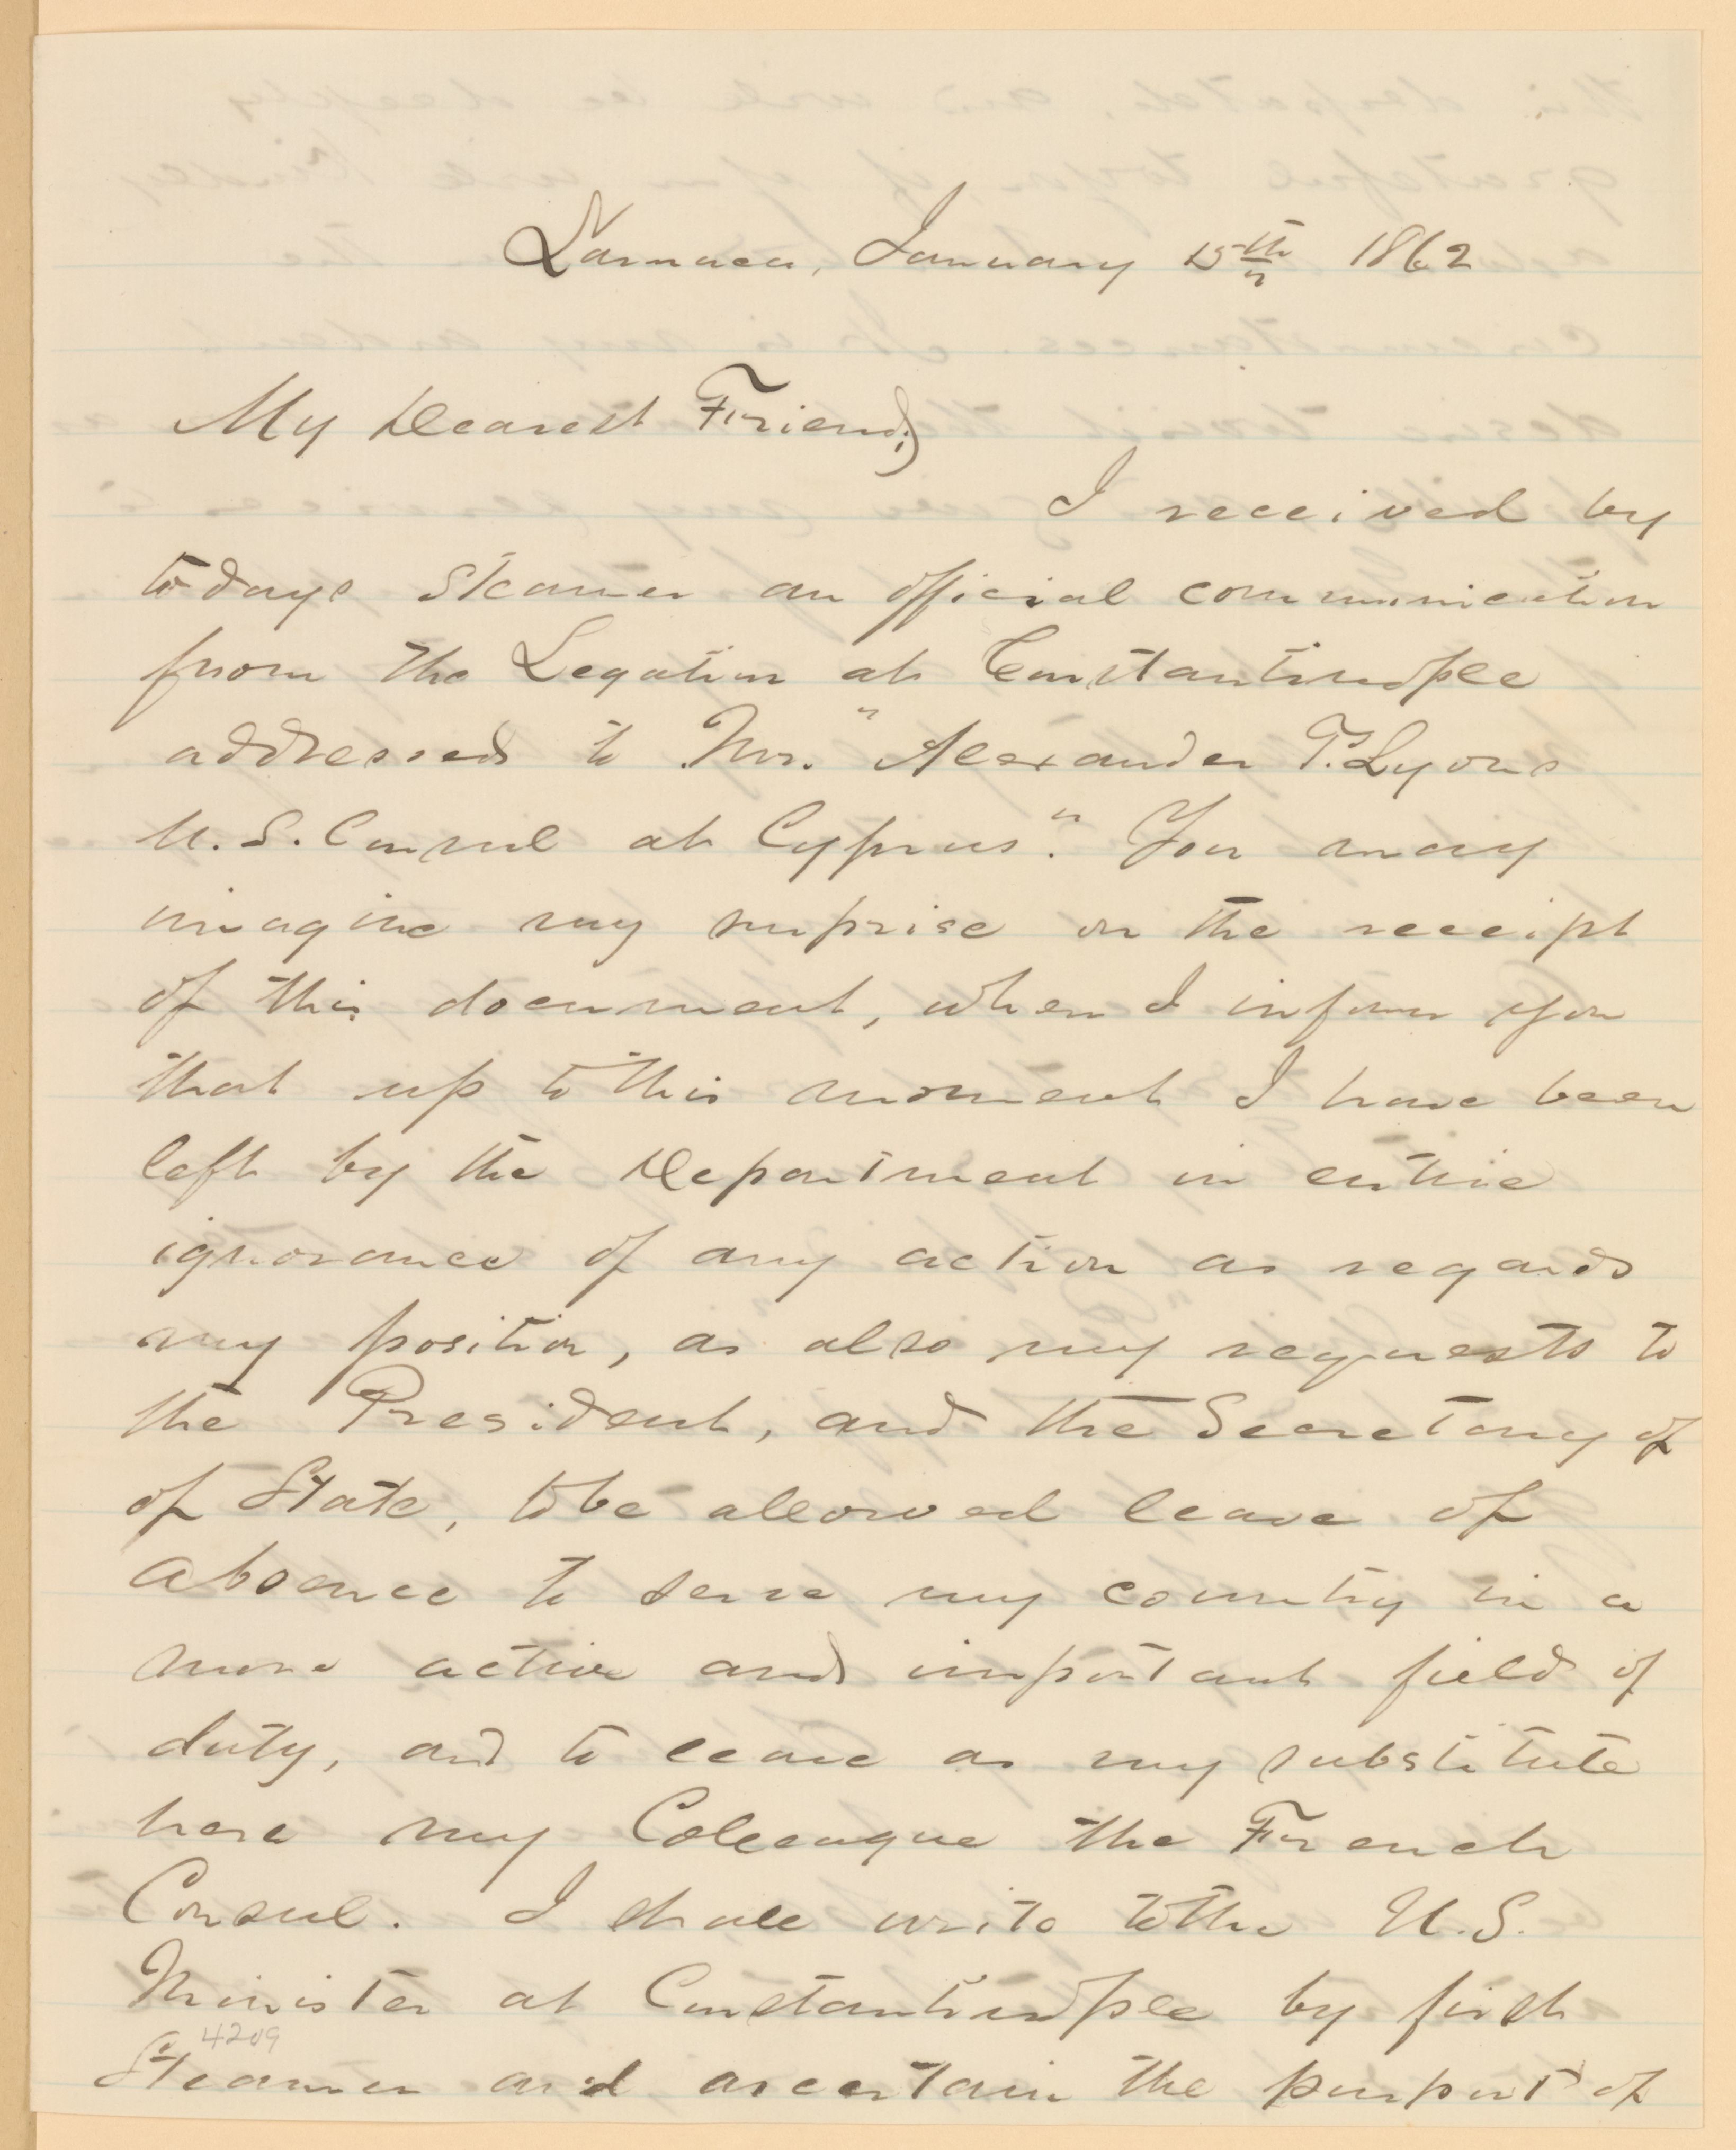 Larnaca, January 15th 1862
My Dearest Friend,
I received by
todays Steamer an official communication
from the Legation at Constantinople
addressed to Mr. "Alexander T. Lyons
U.S. Consul at Cyprus". You may
imagine my surprise on the receipt
of this document, when I inform you
that up to this moment I have been
left by the Department in entire
ignorance of any action as regards
my position, as also my requests to
the President, and the Secretary of
of State, to be allowed leave of
absence to serve my country in a
more active and important field of
duty, and to leave as my substitute
here my Coleague the French
Consul. I shall write to the U.S.
Minister at Constantinople by first
4209
Steamer and ascertain the purport of